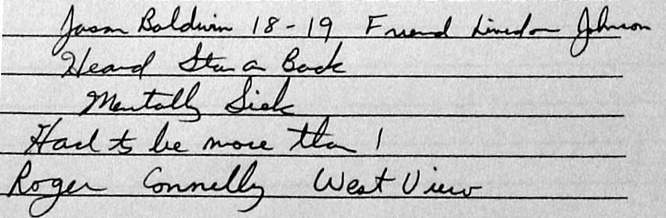 Jason Baldwin 18-19 Friend Johnson
Heard Star on Back
Mentally Sick
Had to be more than 1
Roger Connelly West View